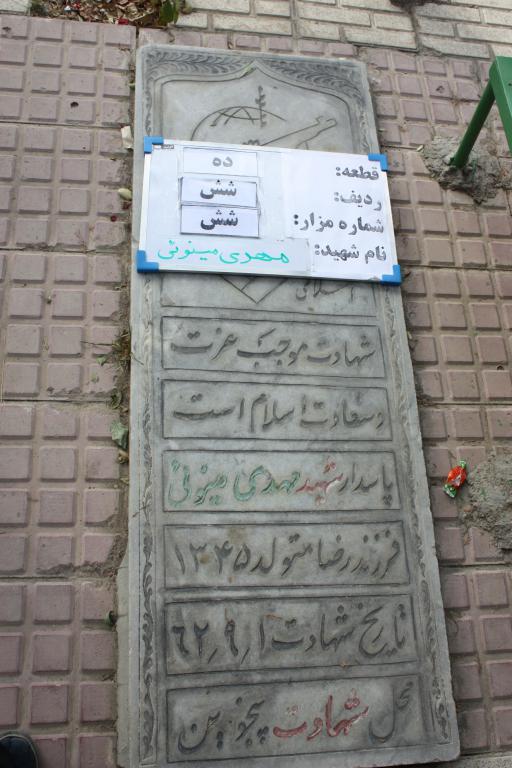 قطعه: ده
ردیف: شش
شماره مزار: شش
نام شهید: مهدی مینوئی
شهادت موجب عزت
و سعادت اسلام است
پاسدار شهید مهدی مینوئی
فرزند رضا متولد ۱۳۴۵
تاریخ شهادت ۱٫۹٫۶۲
محل شهادت پنجوین